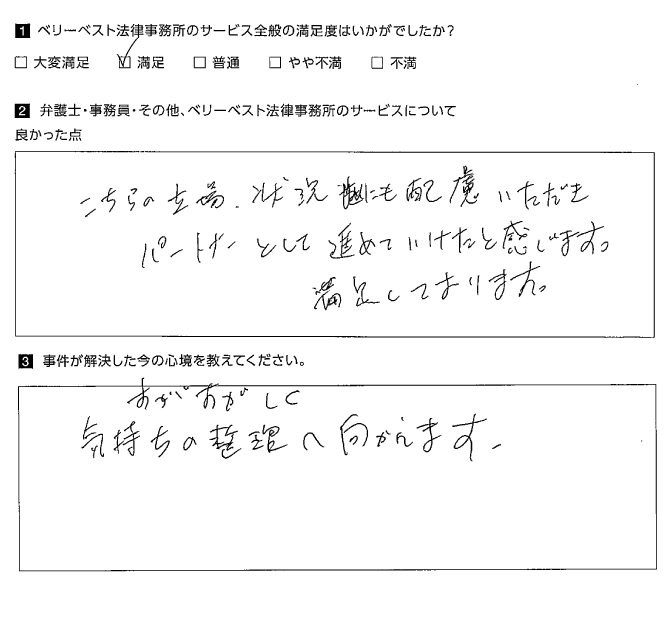 1 ベリーベスト法律事務所のサービス全般の満足度はいかがでしたか？
□ 大変満足 ☑ 満足 □ 普通 □ やや不満 □ 不満
2 弁護士・事務員・その他、ベリーベスト法律事務所のサービスについて
良かった点
こちらの立場、状況にも配慮いただき
パートナーとして進めていけたと感じます。
満足しております。
3 事件が解決した今の心境を教えてください。
すがすがしく
気持ちの整理へ向かえます。